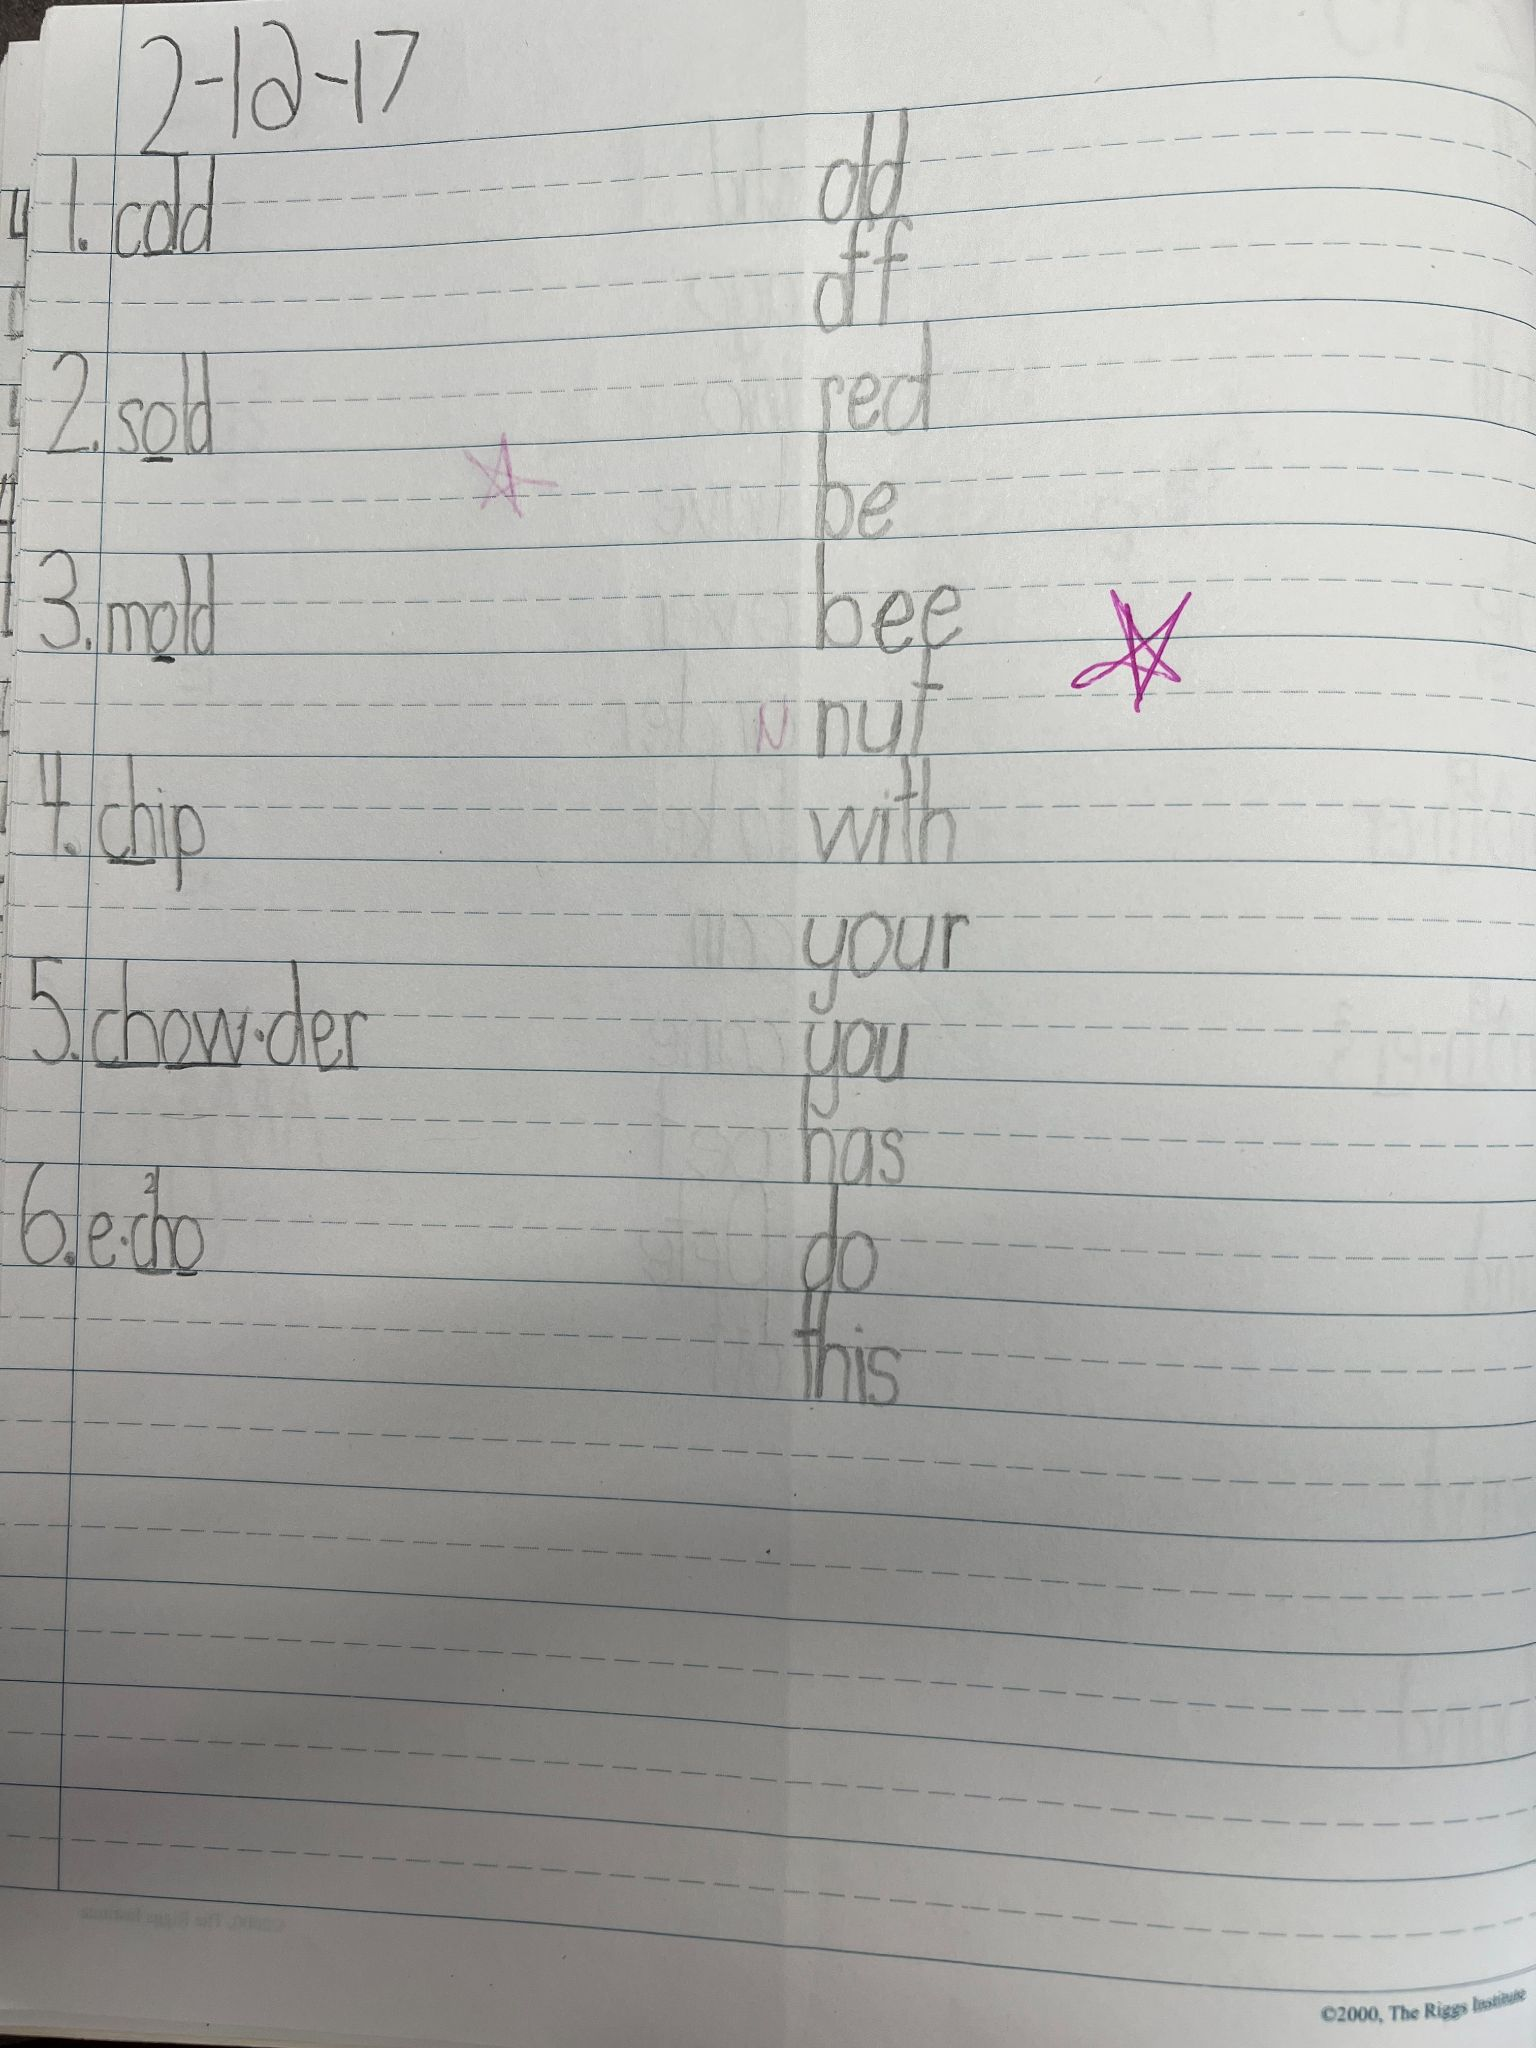 2-16-17
1. cold
2. sold
3. mold
4. chip
5. chow·der
6. e·²cho
old
off
red
be
bee
N nut
with
your
you
has
do
this
©2000, The Riggs Institute